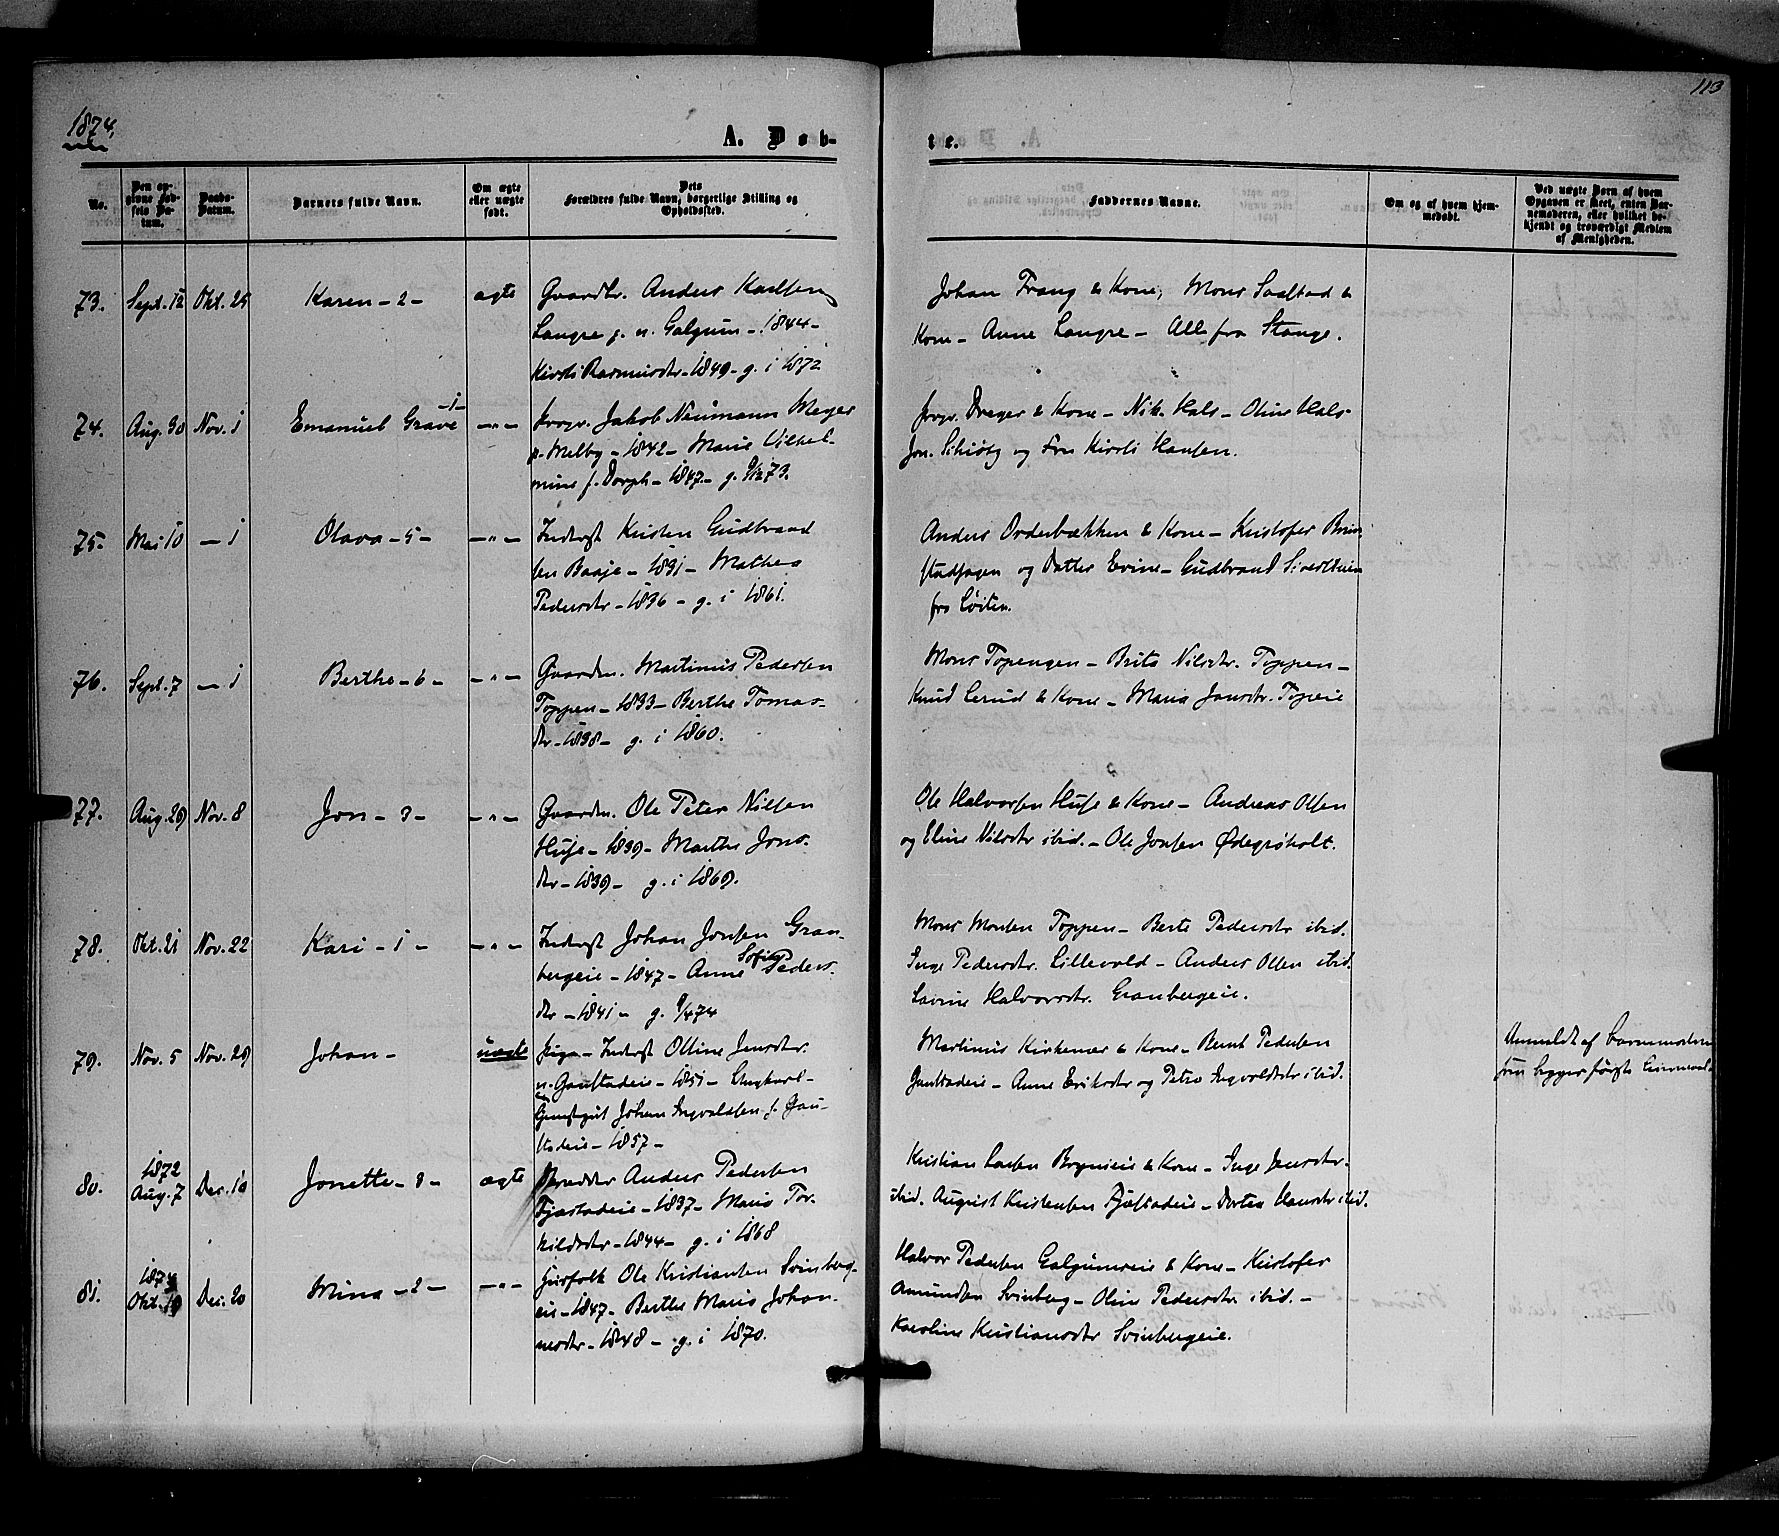 1874.
113
A. Døb-
te.
No.
Den op-
givne Fød-
sels Da-
tum.
Daabs-
Datum.
Barnets fulde Navn.
Om ægte
eller uægte
født.
Dets
Forældres fulde Navn, borgerlige Stilling og
Opholdssted.
Faddernes Navne.
Om og af hvem hjem-
medøbt.
Ved uægte Børn af hvem
Opgaven er skeet, enten Bar-
nemoderen, eller hvilket be-
kjendt og troværdigt Medlem
af Menigheden.
73. Sept. 12 Okt. 25 Karen - 2 - ægte Gaardbr. Anders Karlsen
Langre p. n. Galgum - 1844 -
Kirsti Rasmusdtr - 1849 - g. i 1872
Johan Frang & Kone, Mons Saastad &
Kone - Anne Langre - Alle fra Stange.
74. Aug. 30 Nov. 1 Emanuel Grave -1- -"- Propr. Jakob Neumann Meyer
p. Melby - 1842 - Marie Vilhel-
mine f. Dorph - 1847 - g. 73.
Propr. Dreyer & Kone - Nik. Hals - Oline Hals -
Jon. Schiøtz og Frn Kirsti Hansen.
75. Mai 10 - 1 Olava - 5 - -"- Inderst Kristen Gudbrand
sen Baaje - 1831 - Mathea
Pedersdtr - 1836 - g. i 1861.
Anders Orderbækken & Kone - Kristofer
og Datter Evine - Gudbrand
fra Løiten.
76. Sept. 7 - 1 Berthe - 6 - -"- Gaardm. Martinus Pedersen
Toppen - 1833 - Berthe Tomas-
dtr - 1838 - g. i 1860.
Mons Topengen - Brita Nilsdtr. Toppen -
Knud Lerud & Kone - Maria Jansdtr. Topeie
77. Aug. 29 Nov. 8 Jon - 3 - -"- Gaardm. Ole Peter Nilsen
Huse - 1839 - Marthe Jons-
dtr - 1839 - g. i 1869.
Ole Halvorsen Huse & Kone - Andreas Olsen
og Eline Nilsdtr ibid. - Ole Jonsen Ødegrøholt.
78. Okt. 21 Nov. 22 Kari - 1 - -"- Inderst Johan Jonsen Gran-
bergeie - 1847 - Anne Sofie Peders-
dtr - 1841 - g. 74
Mons Monsen Toppen - Berte Pedersdtr ibid.
Inge Pedersdtr. Lillevold - Anders Olsen ibid.
Lovine Halvorsdtr. Granbergeie.
79. Nov. 5 Nov. 29 Johan - uægte Pige - Inderst Olline Jensdtr.
n. Gaustadeie - 1851 - Ungkarl -
Johan Ingvaldsen p. Gau-
stadeie - 1857 -
Martinus Kirkemær & Kone - Bernt Pedersen
Gaustadeie - Anne Eriksdtr og Petra Ingvoldsdtr ibid.
Anmeldt af barnemoderen
som ligger første Leiermaal.
80. 1872
Aug. 7 Dec. 10 Jonette - 3 - ægte Anders Pedersen
Fjæstadeie - 1837 - Maria Tor-
kildsdtr - 1844 - g. i 1868
Kristian Larsen Brynieie & Kone - Inge Jensdtr.
ibid. August Kristensen Fjæstadeie - Dortea Hansdtr ibid.
81. 1874
Okt. 19 Dec. 20 Mina - 2 - -"- Husfolk Ole Kristiansen Svinberg-
eie - 1847 - Berthe Maria Johan-
nesdtr - 1848 - g. i 1870.
Halvor Pedersen Galgumseie & Kone - Kristofer
Amundsen Svinberg - Oline Pedersdtr ibid. -
Karoline Kristiansdtr Svinbergeie.